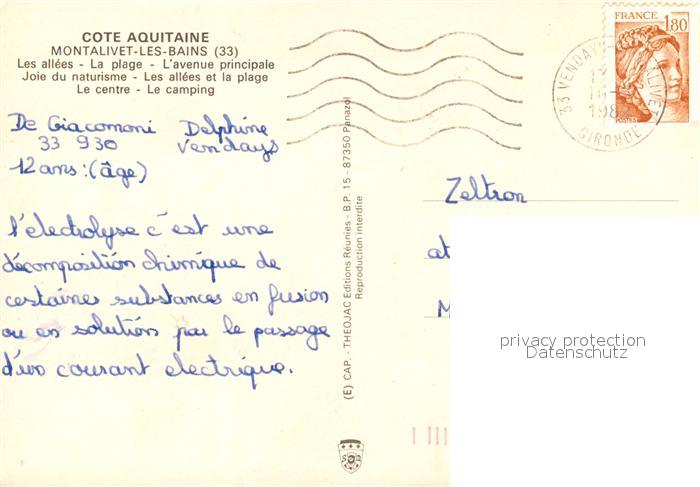 COTE AQUITAINE
MONTALIVET-LES-BAINS (33)
Les allées - La plage - L'avenue principale
Joie du naturisme - Les allées et la plage
Le centre - Le camping
De Giacomoni Delphine
33 930 Vendays
12 ans : (âge)
l'électrolyse c'est une
décomposition chimique de
certaines substances en fusion
ou en solution par le passage
d'un courant electrique.
(E) CAP. - THEOJAC Editions Réunies - B.P. 15 - 87350 Panazol
Reproduction interdite
FRANCE 1,80
POSTES
33 VENDAYS
GIRONDE
Zeltron
at
M
privacy protection
Datenschutz